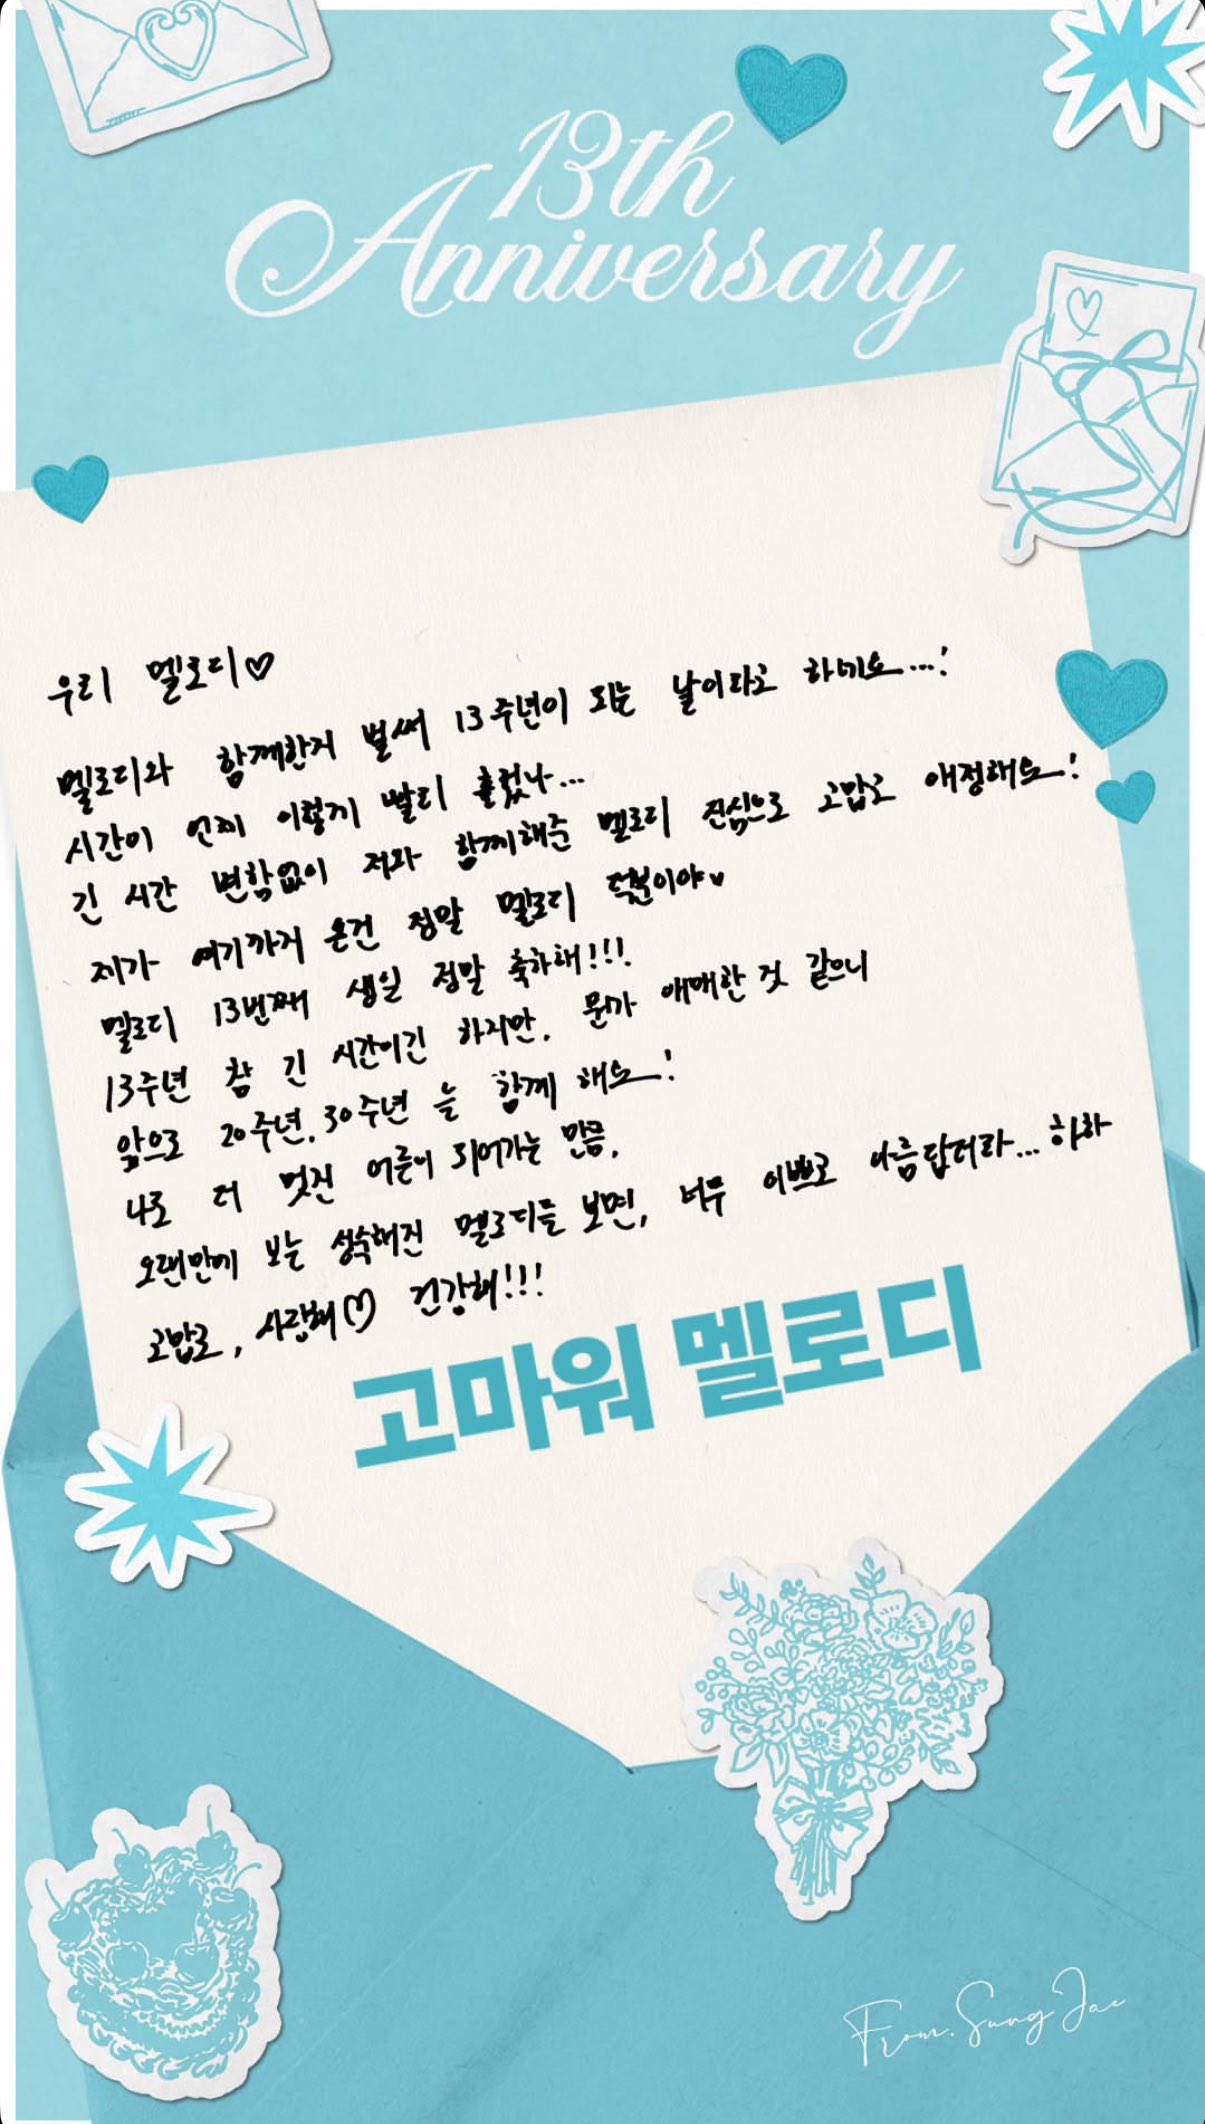 13th
Anniversary
우리 멜로디♡
멜로디와 함께한지 벌써 13주년이 되는 날이라고 하네요...!
시간이 언제 이렇게 빨리 흘렀나...
긴 시간 변함없이 저와 함께해준 멜로디 진심으로 고맙고 애정해요!
제가 여기까지 온건 정말 멜로디 덕분이야♥
멜로디 13번째 생일 정말 축하해!!!
13주년 참 긴 시간이긴 하지만, 뭔가 애매한 것 같으니
앞으로 20주년, 30주년 늘 함께 해요!
나도 더 멋진 어른이 되어가는 만큼,
오랜만에 보는 성숙해진 멜로디를 보면, 너무 이쁘고 아름답더라... 하하
고맙고, 사랑해♡ 건강해!!!
고마워 멜로디
From. SungJae